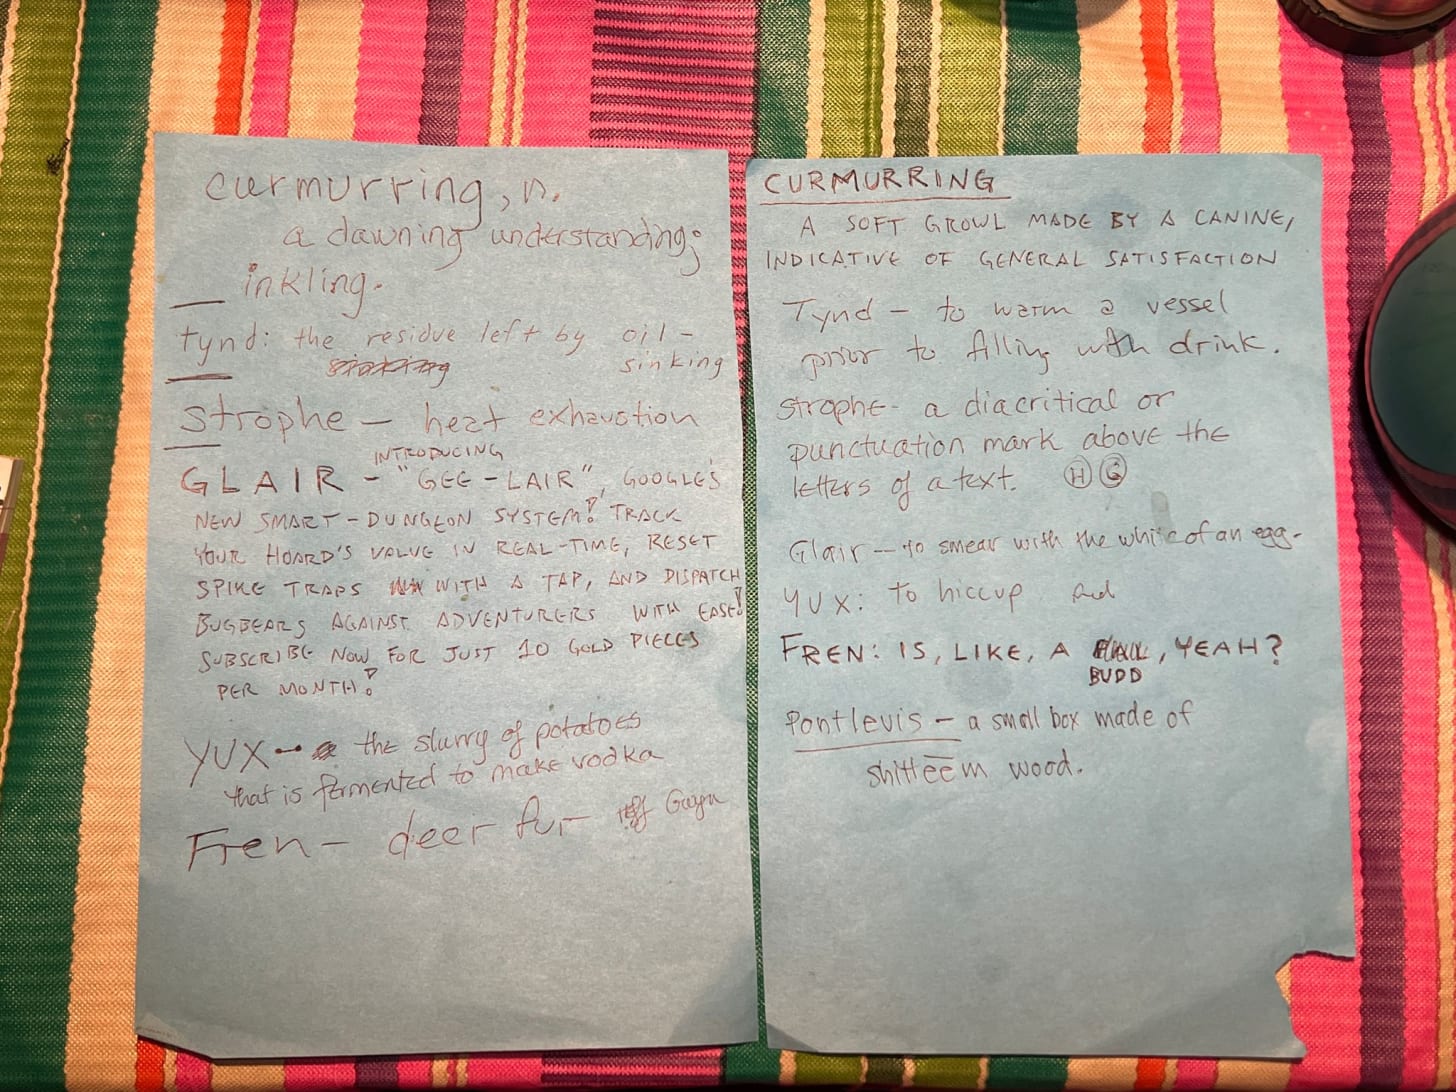 curmurring, n.
a dawning understanding;
inkling.
tynd: the residue left by oil-
sinking
strophe — heat exhaustion
INTRODUCING
GLAIR - "GEE-LAIR", GOOGLE'S
NEW SMART-DUNGEON SYSTEM! TRACK
YOUR HOARD'S VALUE IN REAL-TIME, RESET
SPIKE TRAPS WITH A TAP, AND DISPATCH
BUGBEARS AGAINST ADVENTURERS WITH EASE!
SUBSCRIBE NOW FOR JUST 10 GOLD PIECES
PER MONTH!
YUX — the slurry of potatoes
that is fermented to make vodka
Fren - deer fur
CURMURRING
A SOFT GROWL MADE BY A CANINE,
INDICATIVE OF GENERAL SATISFACTION
Tynd - to warm a vessel
prior to filling with drink.
strophe - a diacritical or
punctuation mark above the
letters of a text. H G
Glair — to smear with the white of an egg.
YUX: to hiccup
FREN: IS, LIKE, A , YEAH?
BUDD
Pontlevis - a small box made of
shitteem wood.